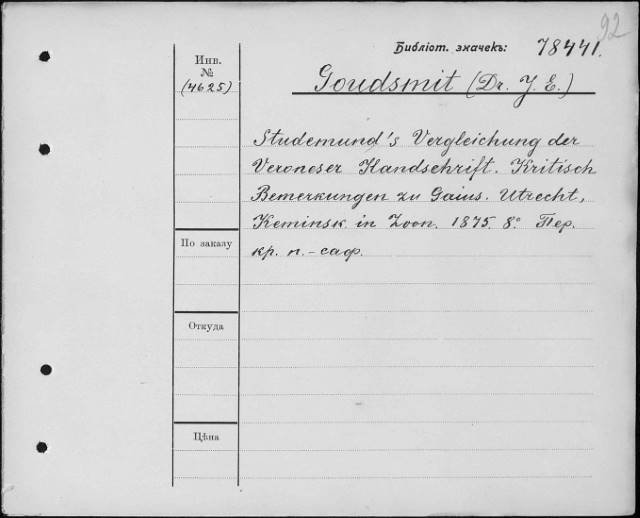 92
Библіот. значекъ: 78441.
Инв.
№
(4625)
Goudsmit (Dr. J. E.)
Studemund's Vergleichung der
Veroneser Handschrift. Kritisch
Bemerkungen zu Gaius. Utrecht,
Keminsk in Zoon. 1875. 8° Пер.
кр. п.-саф.
По заказу
Откуда
Цѣна